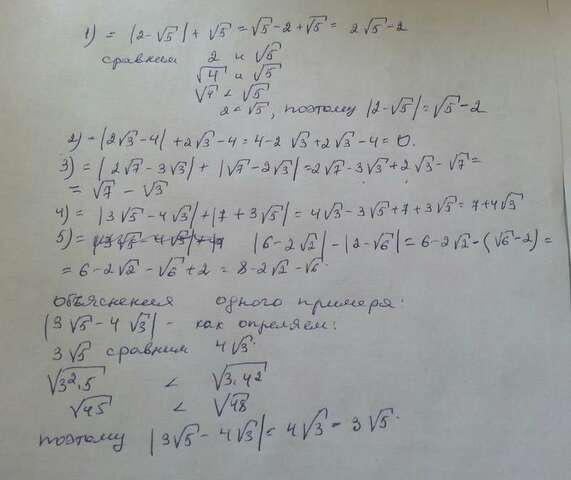 1) = |2-√5| + √5 = √5 - 2 + √5 = 2√5 - 2
сравним 2 и √5
√4 и √5
√4 < √5
2 < √5, поэтому |2-√5| = √5 - 2
2) = |2√3 - 4| + 2√3 - 4 = 4 - 2√3 + 2√3 - 4 = 0.
3) = |2√7 - 3√3| + |√7 - 2√3| = 2√7 - 3√3 + 2√3 - √7 =
= √7 - √3
4) = |3√5 - 4√3| + |7 + 3√5| = 4√3 - 3√5 + 7 + 3√5 = 7 + 4√3
5) = |6 - 2√2| - |2 - √6| = 6 - 2√2 - (√6 - 2) =
= 6 - 2√2 - √6 + 2 = 8 - 2√2 - √6.
объяснения одного примера:
|3√5 - 4√3| - как опреляем:
3√5 сравним 4√3.
√3².5 < √3.42
√45 < √48
поэтому |3√5 - 4√3| = 4√3 - 3√5.